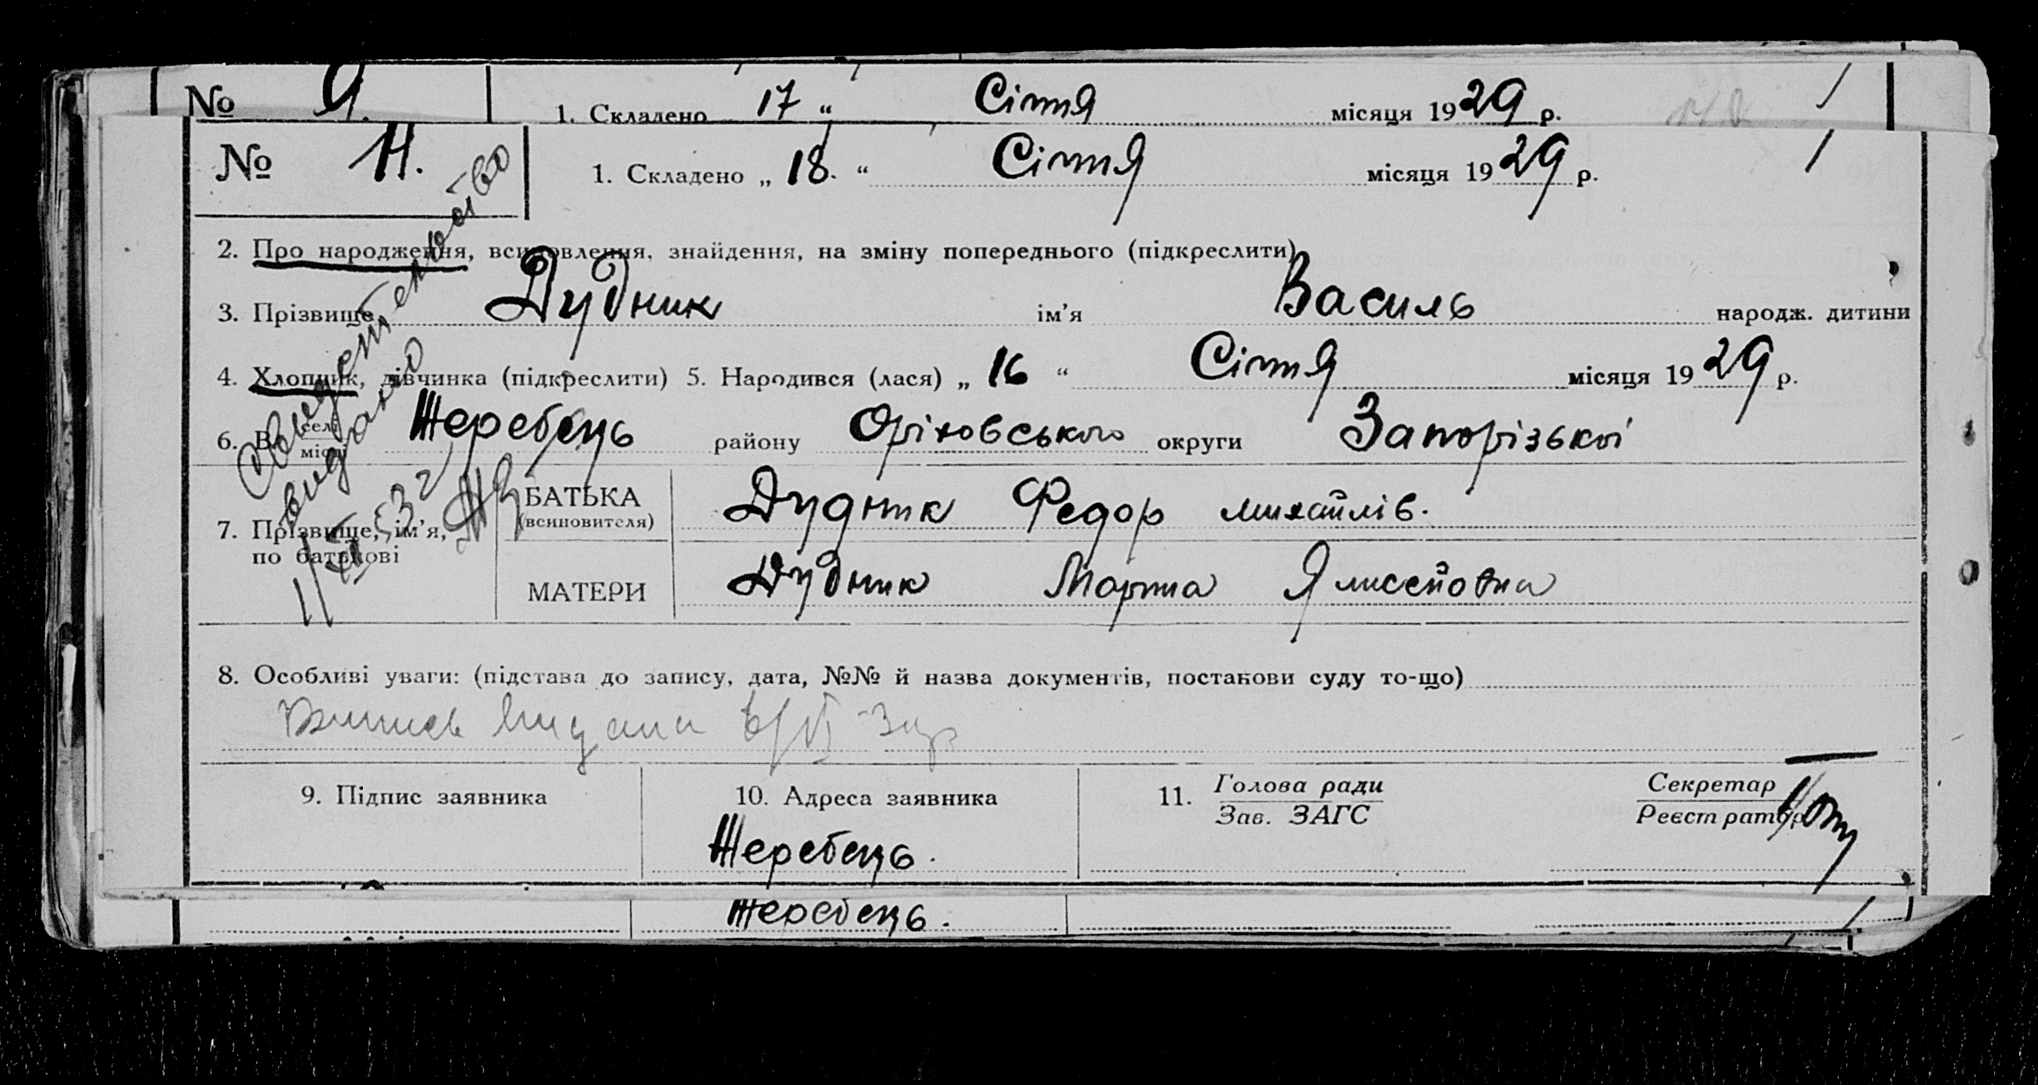 № 9. 1. Складено 17 “ Січня місяця 1929 р.
№ 11. 1. Складено „ 18. “ Січня місяця 1929 р.
2. Про народження, всиновлення, знайдення, на зміну попереднього (підкреслити)
3. Прізвище Дудник ім’я Василь народж. дитини
4. Хлопчик, дівчинка (підкреслити) 5. Народився (лася) „ 16 “ Січня місяця 1929 р.
6. В селі місті Жеребець району Оріховського округи Запорізької
7. Прізвище, ім’я, по батькові
БАТЬКА (всиновителя) Дудник Федор михайлів.
МАТЕРИ Дудник Марта
Свидетельство
видано
8. Особливі уваги: (підстава до запису, дата, №№ й назва документів, постанови суду то-що)
9. Підпис заявника 10. Адреса заявника 11. Голова ради Секретар
Зав. ЗАГС Реєстратор
Жеребець.
Жеребець.